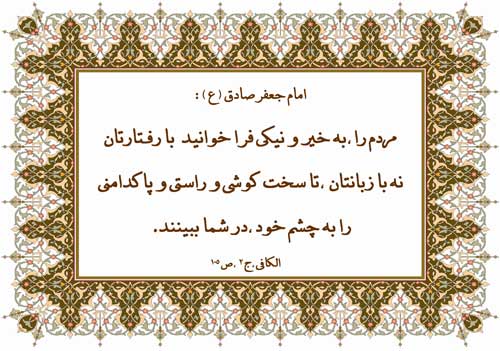 امام جعفر صادق (ع) :
مردم را ، به خیر و نیکی فرا خوانید با رفتارتان
نه با زبانتان ، تا سخت کوشی و راستی و پاکدامنی
را به چشم خود ، در شما ببینند .
الکافی ، ج ۲ ، ص ۱۰۵